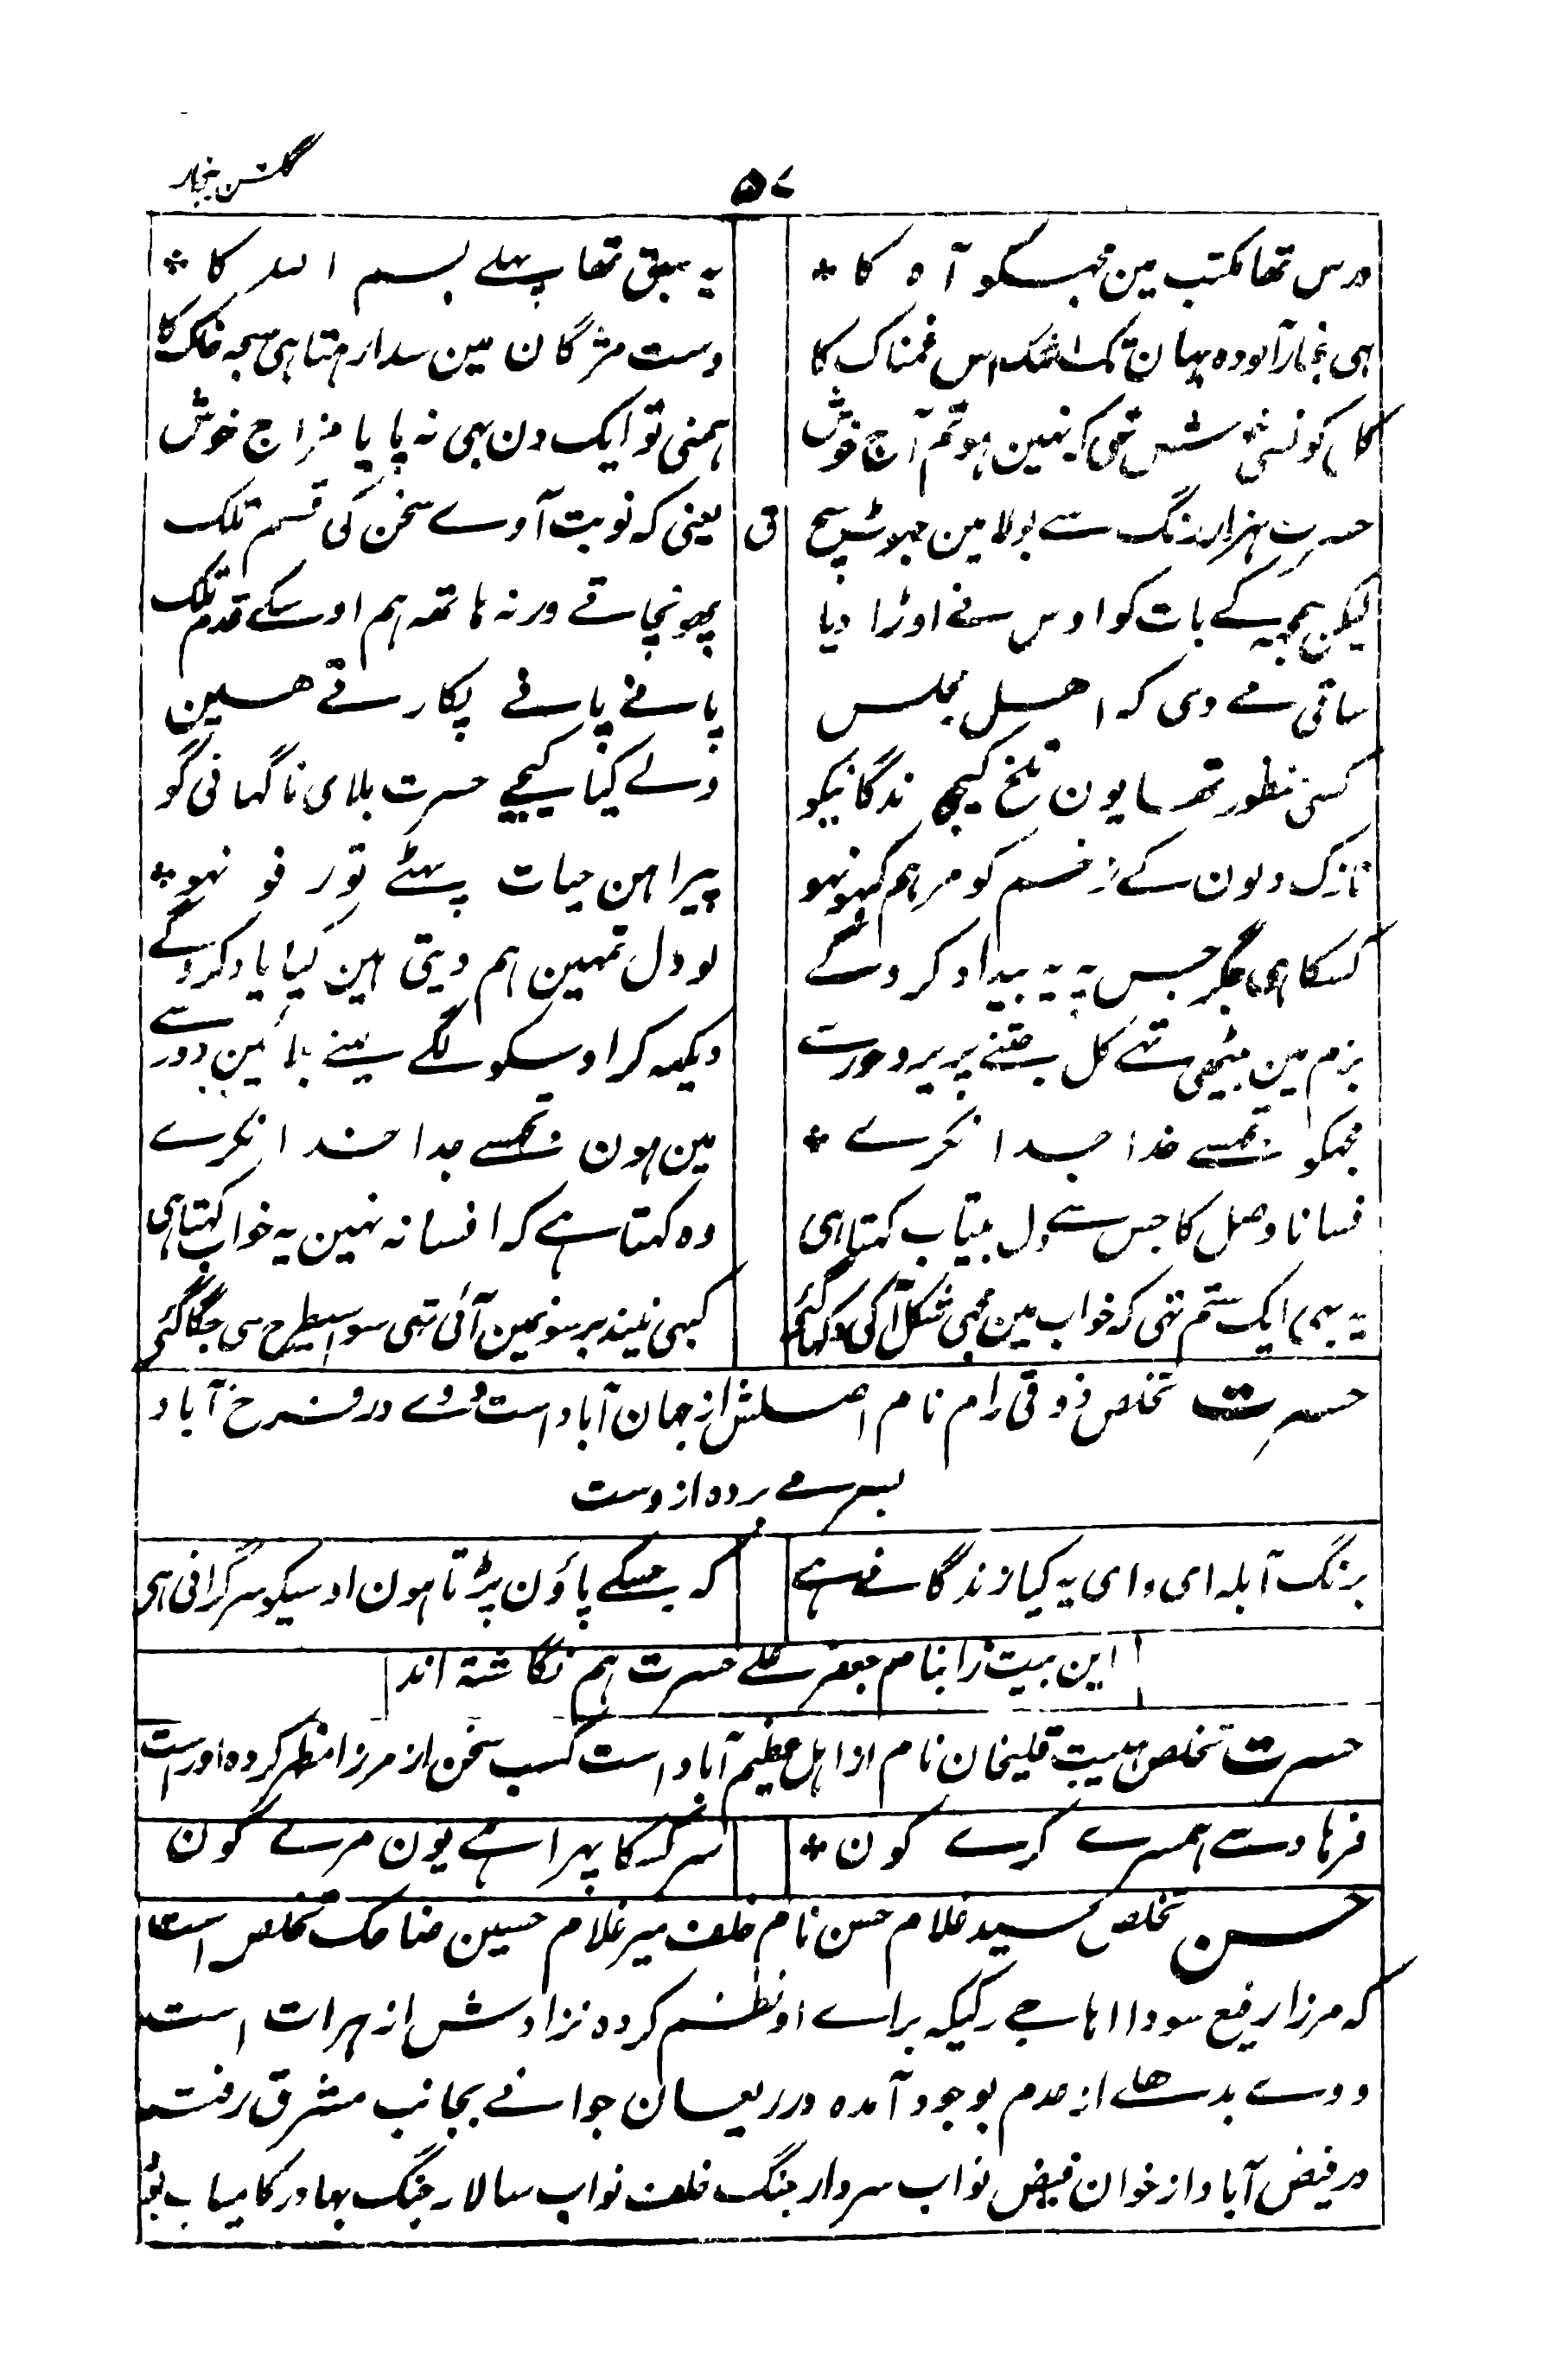 گلشن بیخار
۵۷
درس تھا مکتب مین مجہکو آہ کا * یہ سبق تھا پہلے بسم اللہ کا *
ہی غبار آلودہ یہان تک اشک اس غمناک کا دست مژگان مین سدا رہتا ہی سبحہ خاک کا
کل کونسی تھی کہ نہین ہو تم آج خوش ہمنی تو ایک دن بہی نہ پایا مزاج خوش
حسرت ہزار رنگ سے بولا مین جہوٹہ سچ ق یعنی کہ نوبت آوے سخن کی قسم تلک
لیکن ہچپکے بات کو اوس نے اوڑا دیا پہونچاتے ورنہ ہاتھہ ہم اوسکے قدم تلک
ساقی مے دی کہ اہل مجلس پانے پانے پکارتے ہین
کسی منظور تھا یون تلخ کیجی زندگانیکو ولے کیا کیجیے حسرت بلای ناگہانی کو
نازک دلون کے زخم کو مرہم کبہو نہو پیراہن حیات پہٹے تو رفو نہو *
کسکا ہی جگر جس پہ یہ بیداد کروگے لو دل تمہین ہم دیتی ہین کیا یاد کروگے
بزم مین بیٹھی تھے کل جتنے پریرو حورت دیکھہ کر اوسکو لگے لینے بلائین دور سے
مجہکو تجھسے خدا جدا نکرے * مین ہون تجھسے جدا خدا نکرے
فسانا وصل کا جس سے دل بیتاب کہتا ہی وہ کہتا ہے کہ افسانہ نہین یہ خواب کہتا ہی
یہ بہی ایک ستم تھی کہ خواب مین مجہی شکل آکی دکہا گئے کبہی نیند برسونمین آئی تہی سو اسیطرح سی جگا گئے
حسرت تخلص ذوقی رام نام اصلش از جہان آباد است و وے در فرخ آباد
بسر مے بردہ از وست
برنگ آبلہ ای وای یہ کیا زندگانے ہے کہ جسکے پاؤن پڑتا ہون اوسیکو سرگرانی ہی
این بیت را بنام جعفر علے حسرت ہم نگاشتہ اند
حسرت تخلص ہیبت قلیخان نام از اہل عظیم آباد است کسب سخن از مرزا مظہر کردہ اوراست
فرہاد سے ہمسرے کرے کون * سر کسکا پہرا ہے یون مرے کون
حسن تخلص سید غلام حسن نام خلف میر غلام حسین ضاحک تخلص است
کہ مرزا رفیع سودا اہاجے رکیکہ براے او نظم کردہ نژادش از ہرات است
و وے بدہلے از عدم بوجود آمدہ در ریعان جوانے بجانب مشرق رفت
در فیض آباد از خوان فیض نواب سردار جنگ خلف نواب سالار جنگ بہادر کامیاب